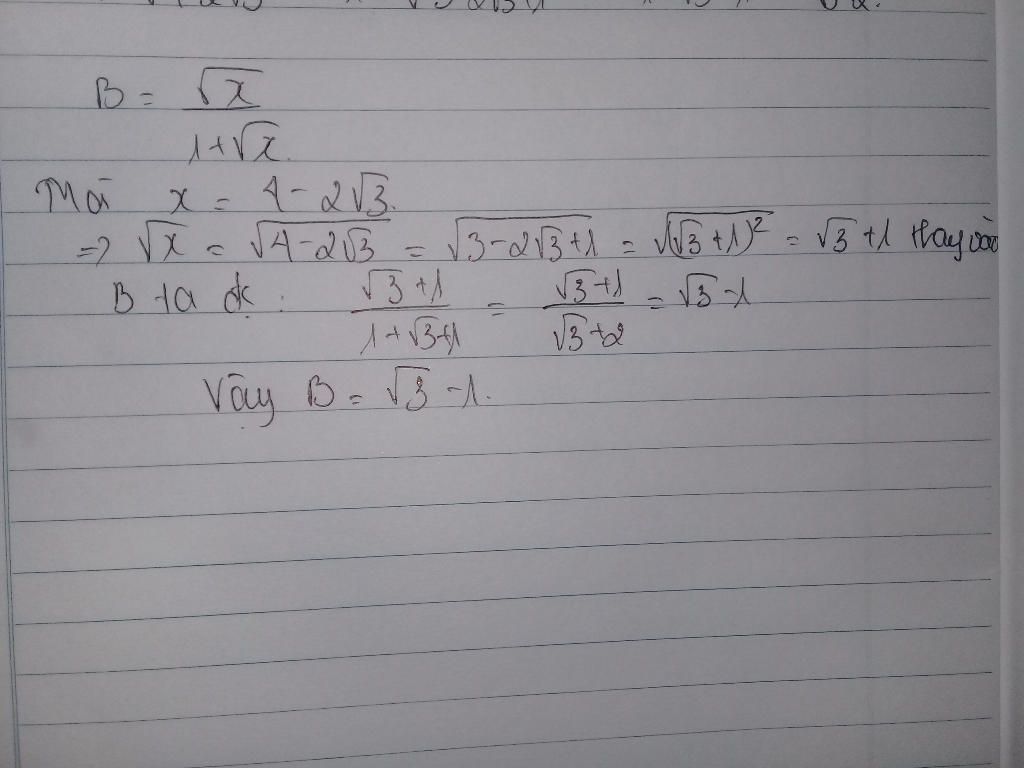 B = √x / (1+√x).
Mà x = 4 - 2√3.
=> √x = √(4-2√3) = √(3-2√3+1) = √((√3+1)²) = √3+1 thay vào
B ta đc : (√3+1) / (1+√3+1) = (√3+1) / (√3+2) = √3-1
Vậy B = √3-1.